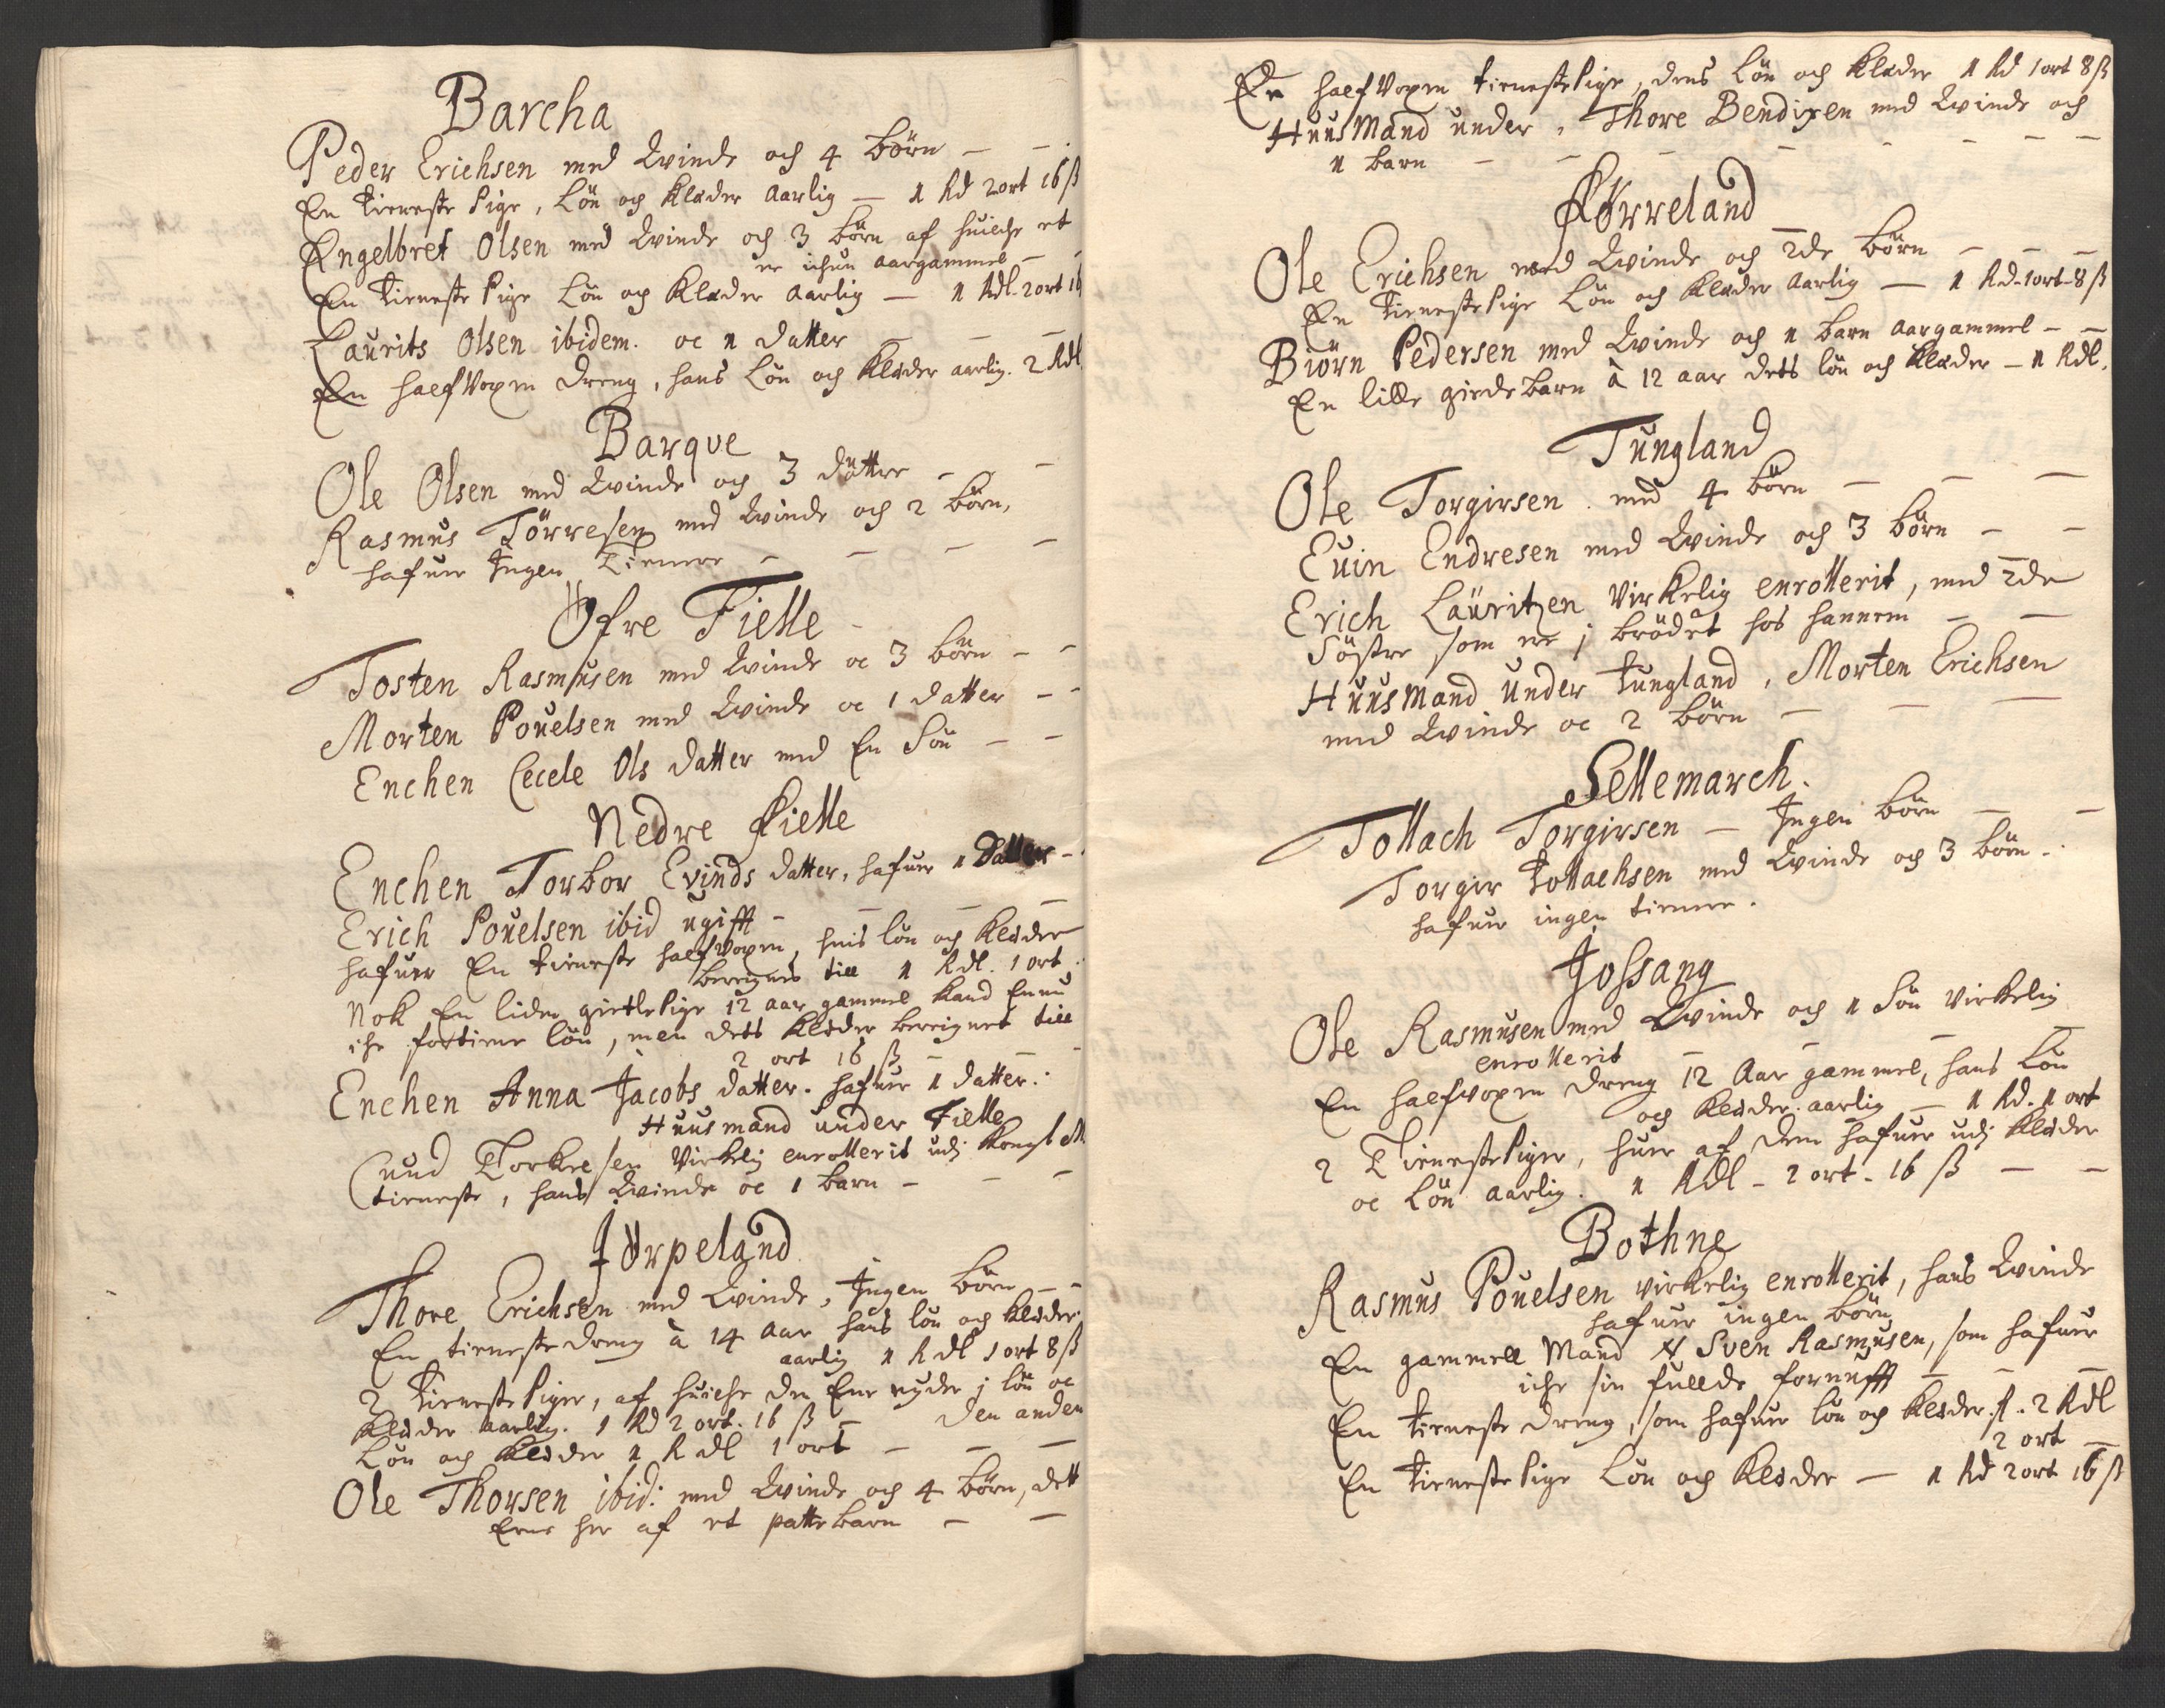 Barcha
Peder Erichsen med Qvinde och 4 börn —
En tieneste Pige, Lön och Klæder Aarlig — 1 Rd 2 ort 16 ß
Engelbret Olsen med Qvinde och 3 börn af huilche et
er ichun aargammel —
En tieneste Pige Lön och Klæder Aarlig — 1 Rdl. 2 ort 16
Laurits Olsen ibidem. oc 1 datter —
En halfVoxen dreng, hans Lön och Klæder aarlig. 2 Rdl.
Barqve
Ole Olsen med Qvinde och 3 döttre — —
Rasmus Törresen med Qvinde och 2 börn,
hafuer Ingen Tienere — — — —
Öfre Fielle
Tosten Rasmusen med Qvinde oc 3 börn — —
Morten Pouelsen med Qvinde oc 1 datter — —
Enchen Cecele Ols datter med En Sön — —
Nedre Fielle
Enchen Torbor Evinds datter, hafuer 1 Datter —
Erich Pouelsen ibid ugifft — — — —
hafuer En tieneste halfvoxen, huis lön och Klæder
bereignes till 1 Rdl. 1 ort.
Nok En liden giette Pige 12 aar gammel kand Ennu
iche fortiene lön, men dets Klæder bereignet till
2 ort 16 ß — — —
Enchen Anna Jacobs datter. hafuer 1 datter.
Huusmand under Fielle
Cnud Torkresen Virkelig enrollerit udj Kongl M
tieneste, hans Qvinde oc 1 barn — — —
Jörpeland
Thore Erichsen med Qvinde, Ingen börn — —
En tieneste dreng à 14 Aar hans lön och Klæder
aarlig 1 Rdl 1 ort 8 ß
2 tieneste Piger, af huilche den Ene nyder j lön oc
Klæder aarlig. 1 Rd 2 ort. 16 ß — den anden
Lön och Klæder 1 Rdl 1 ort — — —
Ole Thorsen ibid: med Qvinde och 4 börn, dett
Ene her af et patte barn — —
En halfVoxen tieneste Pige, dens Lön och Klæder 1 Rd 1 ort 8 ß
HuusMand under, Thore Bendixen med Qvinde och
1 barn — — — — — — —
Körreland
Ole Erichsen med Qvinde och 2de börn — — —
En tieneste Pige Lön och Klæder Aarlig — 1 Rd. 1 ort. 8 ß
Biörn Pedersen med Qvinde och 1 barn aargammel — —
En lille giede barn à 12 aar dets lön och Klæder — 1 Rdl.
Tungland
Ole Torgirsen med 4 börn — — —
Euin Endresen med Qvinde och 3 börn — —
Erich Lauritzen Virkelig enrollerit, med 2de
Söstre som er j brödet hos hannem — —
HuusMand under tungland, Morten Erichsen
med Qvinde oc 2 börn — — —
Sellemarch.
Tollach Torgirsen — Ingen börn — —
Torgir Tollachsen med Qvinde och 3 börn —
hafuer ingen tiener.
Jossang
Ole Rasmusen med Qvinde och 1 Sön Virkelig
enrollerit — — — —
En halfvoxen dreng 12 Aar gammel, hans Lön
och Klæder aarlig — 1 Rd. 1 ort
2 Tieneste Piger, huer af dem hafuer udj Klæder
oc Lön aarlig. 1 Rdl — 2 ort — 16 ß — —
Bothne
Rasmus Pouelsen virkelig enrollerit, hans Qvinde
hafuer ingen börn
En gammell Mand Sven Rasmusen, som hafuer
iche sin fullde fornufft — — —
En tieneste dreng, som hafuer lön och Klæder. 2 Rdl
2 ort —
En tieneste Pige Lön och Klæder — 1 Rd 2 ort 16 ß